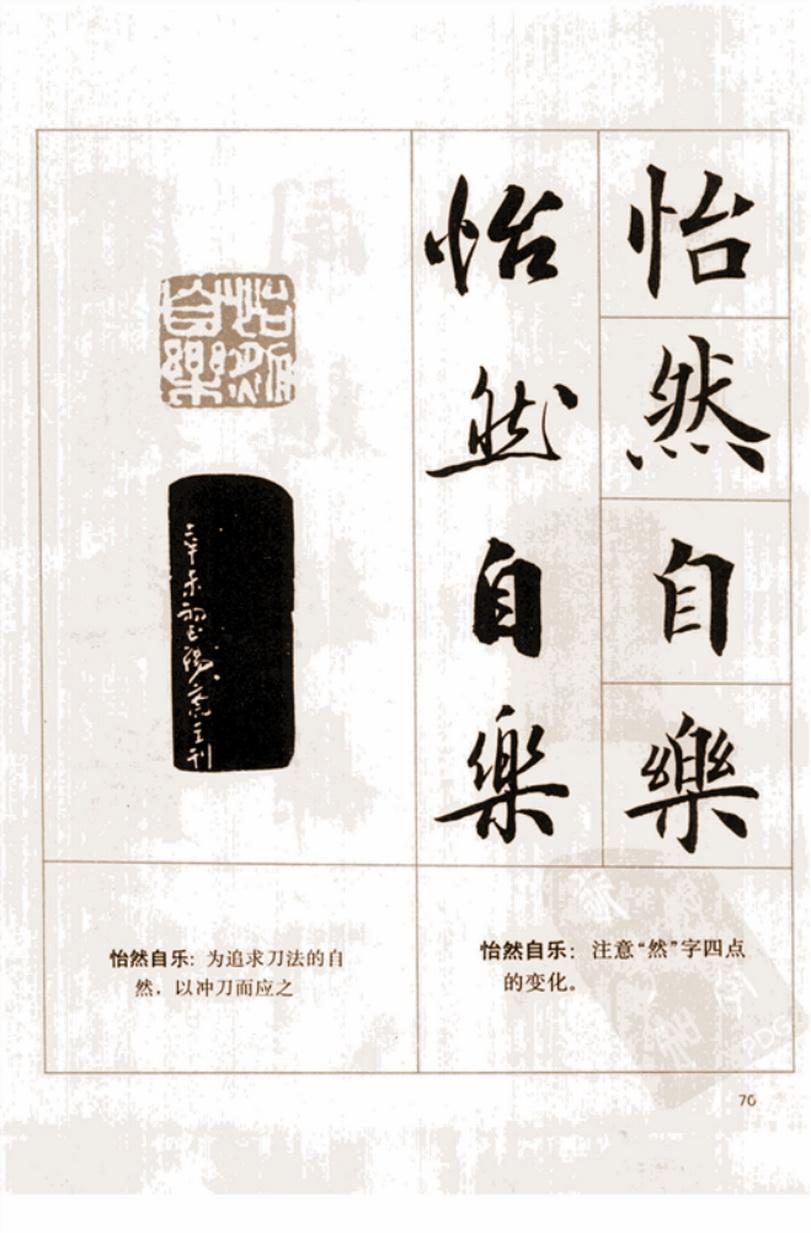 怡然自樂
怡然自樂
怡然自樂
辛未初
刊
怡然自乐：为追求刀法的自
然，以冲刀而应之
怡然自乐：注意“然”字四点
的变化。
70
PDG